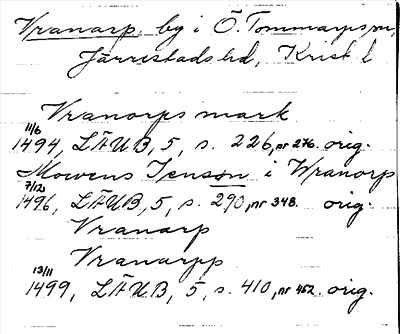 Vranarp, by i Ö. Tommarps sn,
Järrestads hd, Krist l
Vranorps mark
11/6
1494, LÄUB, 5, s. 226, nr 276. orig.
Mowens Jenson i Wranorp
7/12
1496, LÄUB, 5, s. 290, nr 348. orig.
Vranarp
Vranarpp
13/11
1499, LÄUB, 5, s. 410, nr 462. orig.